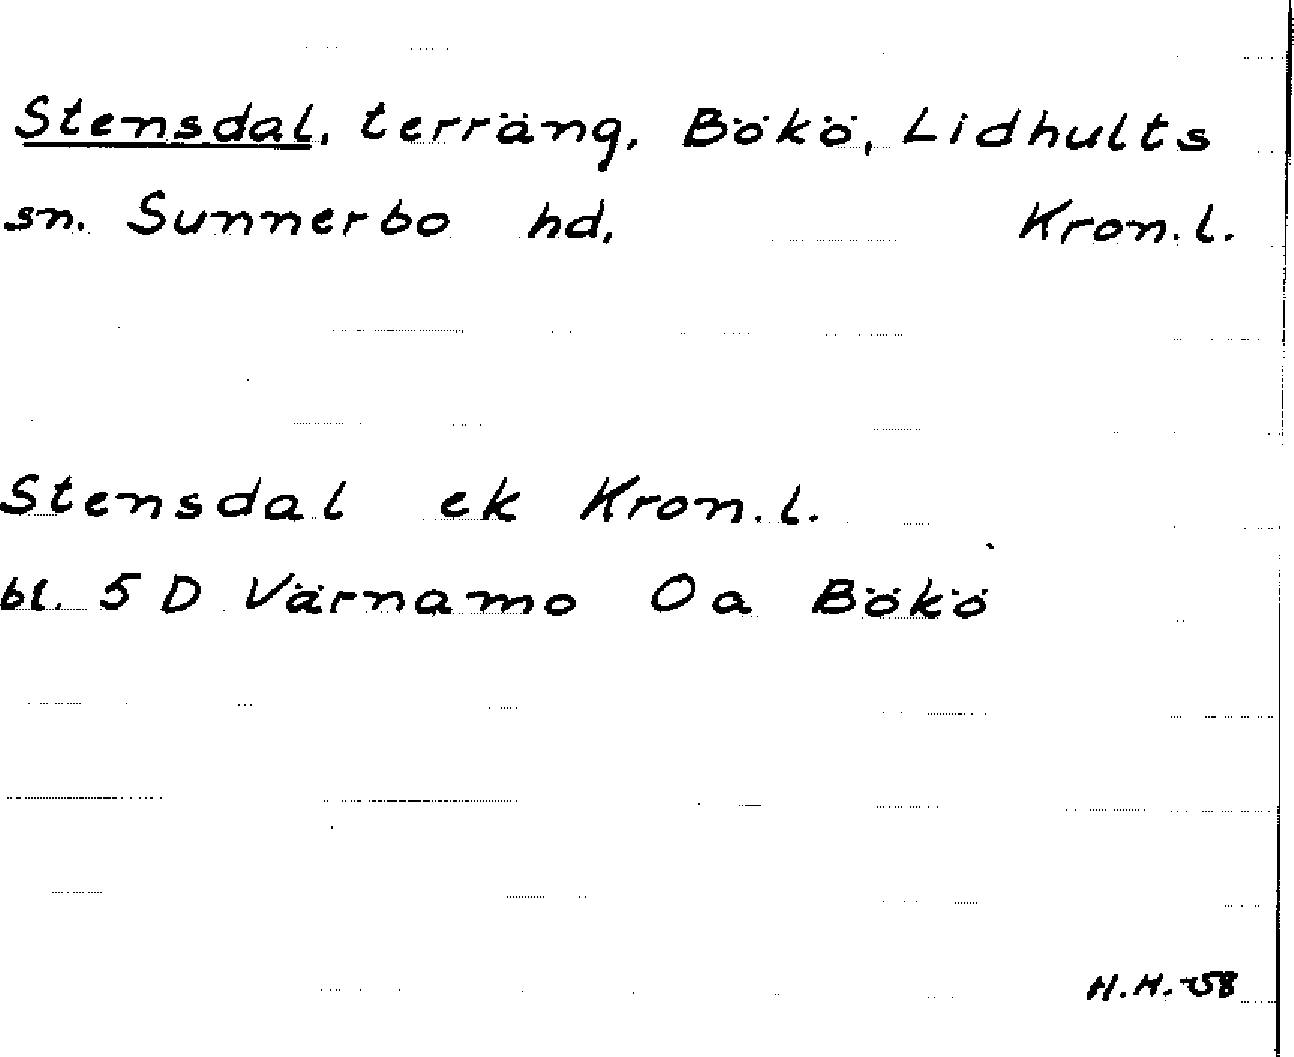 Stensdal, terräng, Bökö, Lidhults
sn. Sunnerbo hd, Kron.l.
Stensdal ek Kron.l.
bl. 5 D Värnamo Oa Bökö
H.H.-58